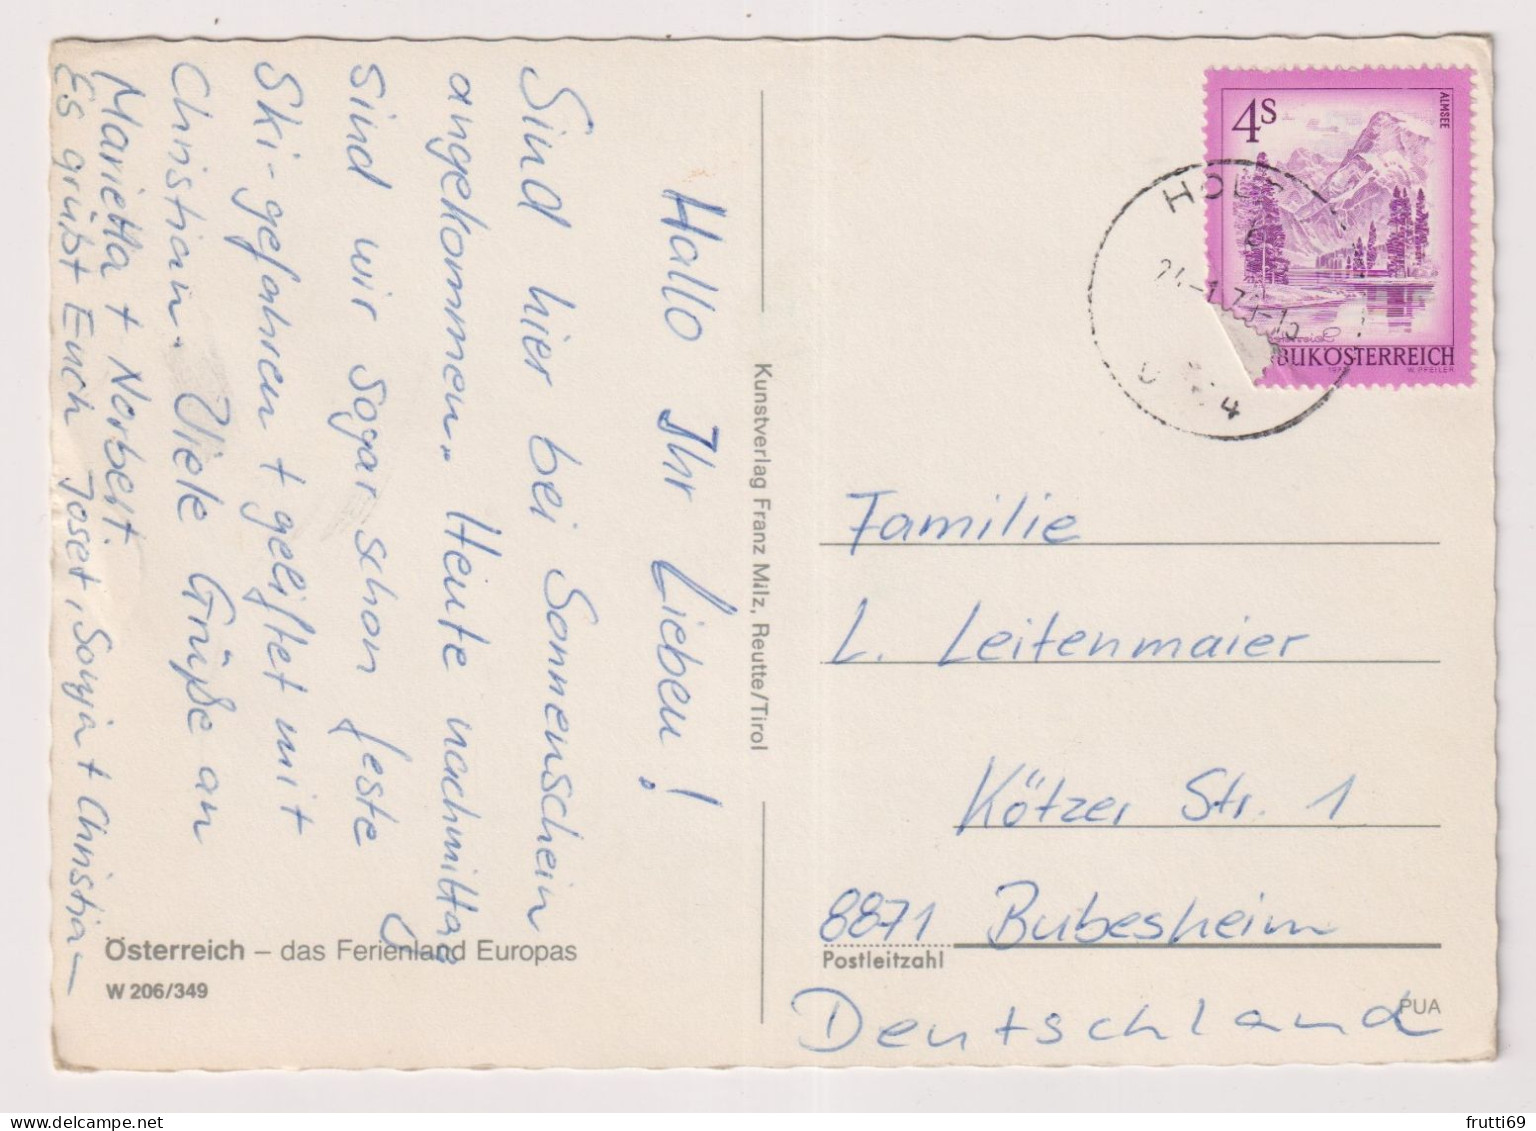 Hallo Ihr Lieben!
Sind hier bei Sonnenschein
angekommen. Heute nachmittag
sind wir sogar schon feste
Ski-gefahren + geliftet mit
Christian. Viele Grüße an
Marietta + Norbert.
Es grüßt Euch Josef, Sonja + Christian
Österreich – das Ferienland Europas
W 206/349
Kunstverlag Franz Milz, Reutte/Tirol
4S
ALMSEE
BUKÖSTERREICH
W. PFEILER
Familie
L. Leitenmaier
Kötzer Str. 1
8871 Bubesheim
Postleitzahl
PUA
Deutschland
frutti69